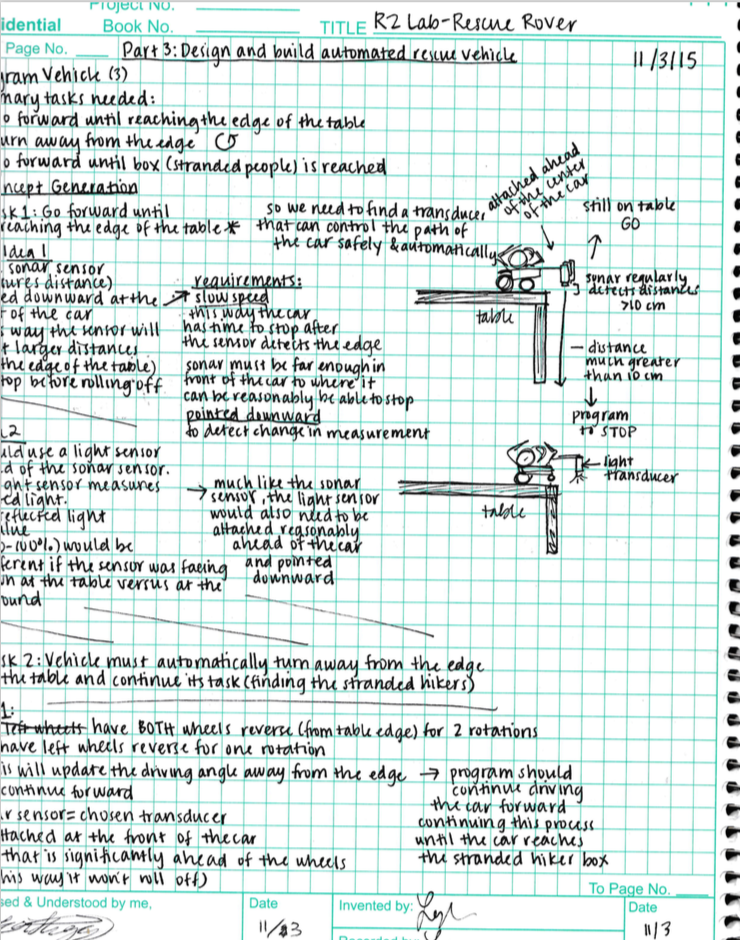 Project No.
idential Book No. TITLE R2 Lab-Rescue Rover
Page No. Part 3: Design and build automated rescue vehicle 11/3/15
gram Vehicle (3)
mary tasks needed:
o forward until reaching the edge of the table
urn away from the edge
o forward until box (stranded people) is reached
ncept Generation
sk 1: Go forward until
reaching the edge of the table *
so we need to find a transducer
that can control the path of
the car safely & automatically
attached ahead
of the center
of the car
still on table
GO
Idea 1
sonar sensor
sures distance)
ed downward at the
of the car
way the sensor will
t larger distances
the edge of the table)
top before rolling off
requirements:
slow speed
this way the car
has time to stop after
the sensor detects the edge
sonar must be far enough in
front of the car to where it
can be reasonably be able to stop
pointed downward
to detect change in measurement
sonar regularly
detects distances
>10 cm
table
distance
much greater
than 10 cm
program
to STOP
2
uld use a light sensor
d of the sonar sensor.
ght sensor measures
ed light.
reflected light
alue
0-100%) would be
ferent if the sensor was facing
wn at the table versus at the
ound
→ much like the sonar
sensor, the light sensor
would also need to be
attached reasonably
ahead of the car
and pointed
downward
light
transducer
table
sk 2: Vehicle must automatically turn away from the edge
the table and continue its task (finding the stranded hikers)
1:
Left wheels have BOTH wheels reverse (from table edge) for 2 rotations
have left wheels reverse for one rotation
is will update the driving angle away from the edge → program should
continue forward
continue driving
the car forward
continuing this process
until the car reaches
the stranded hiker box
r sensor = chosen transducer
ttached at the front of the car
that is significantly ahead of the wheels
his way it won't roll off)
To Page No.
sed & Understood by me, Date Invented by: Date
11/3 11/3